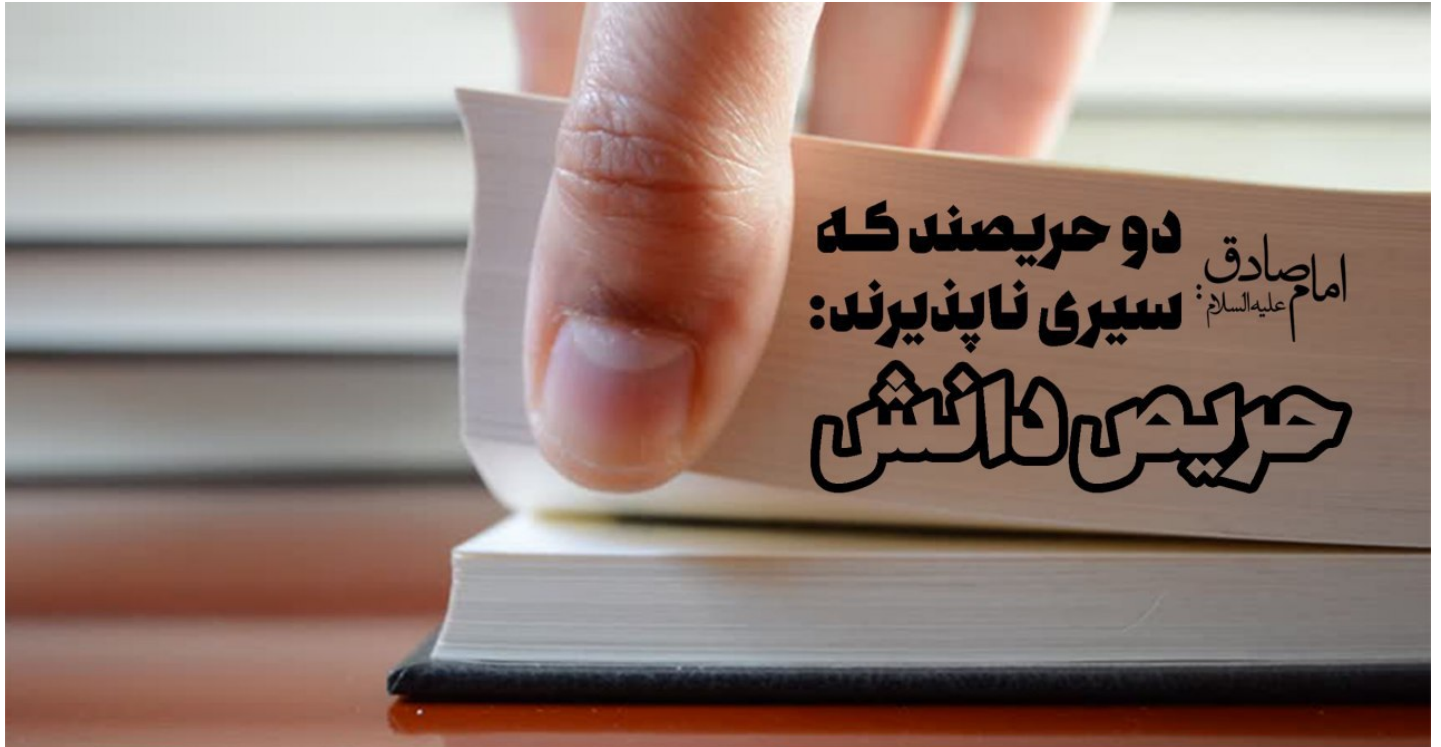 امام صادق
علیه‌السلام:
دو حریصند که
سیری ناپذیرند:
حریص دانش